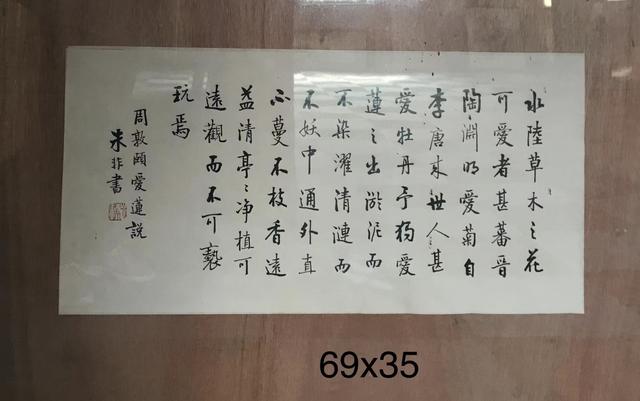 水陸草木之花
可愛者甚蕃晋
陶淵明愛菊自
李唐来世人甚
愛牡丹予獨愛
蓮之出淤泥而
不染濯清漣而
不妖中通外直
不蔓不枝香遠
益清亭〻净植可
遠觀而不可褻
玩焉
周敦頤愛蓮說
朱非書
69x35